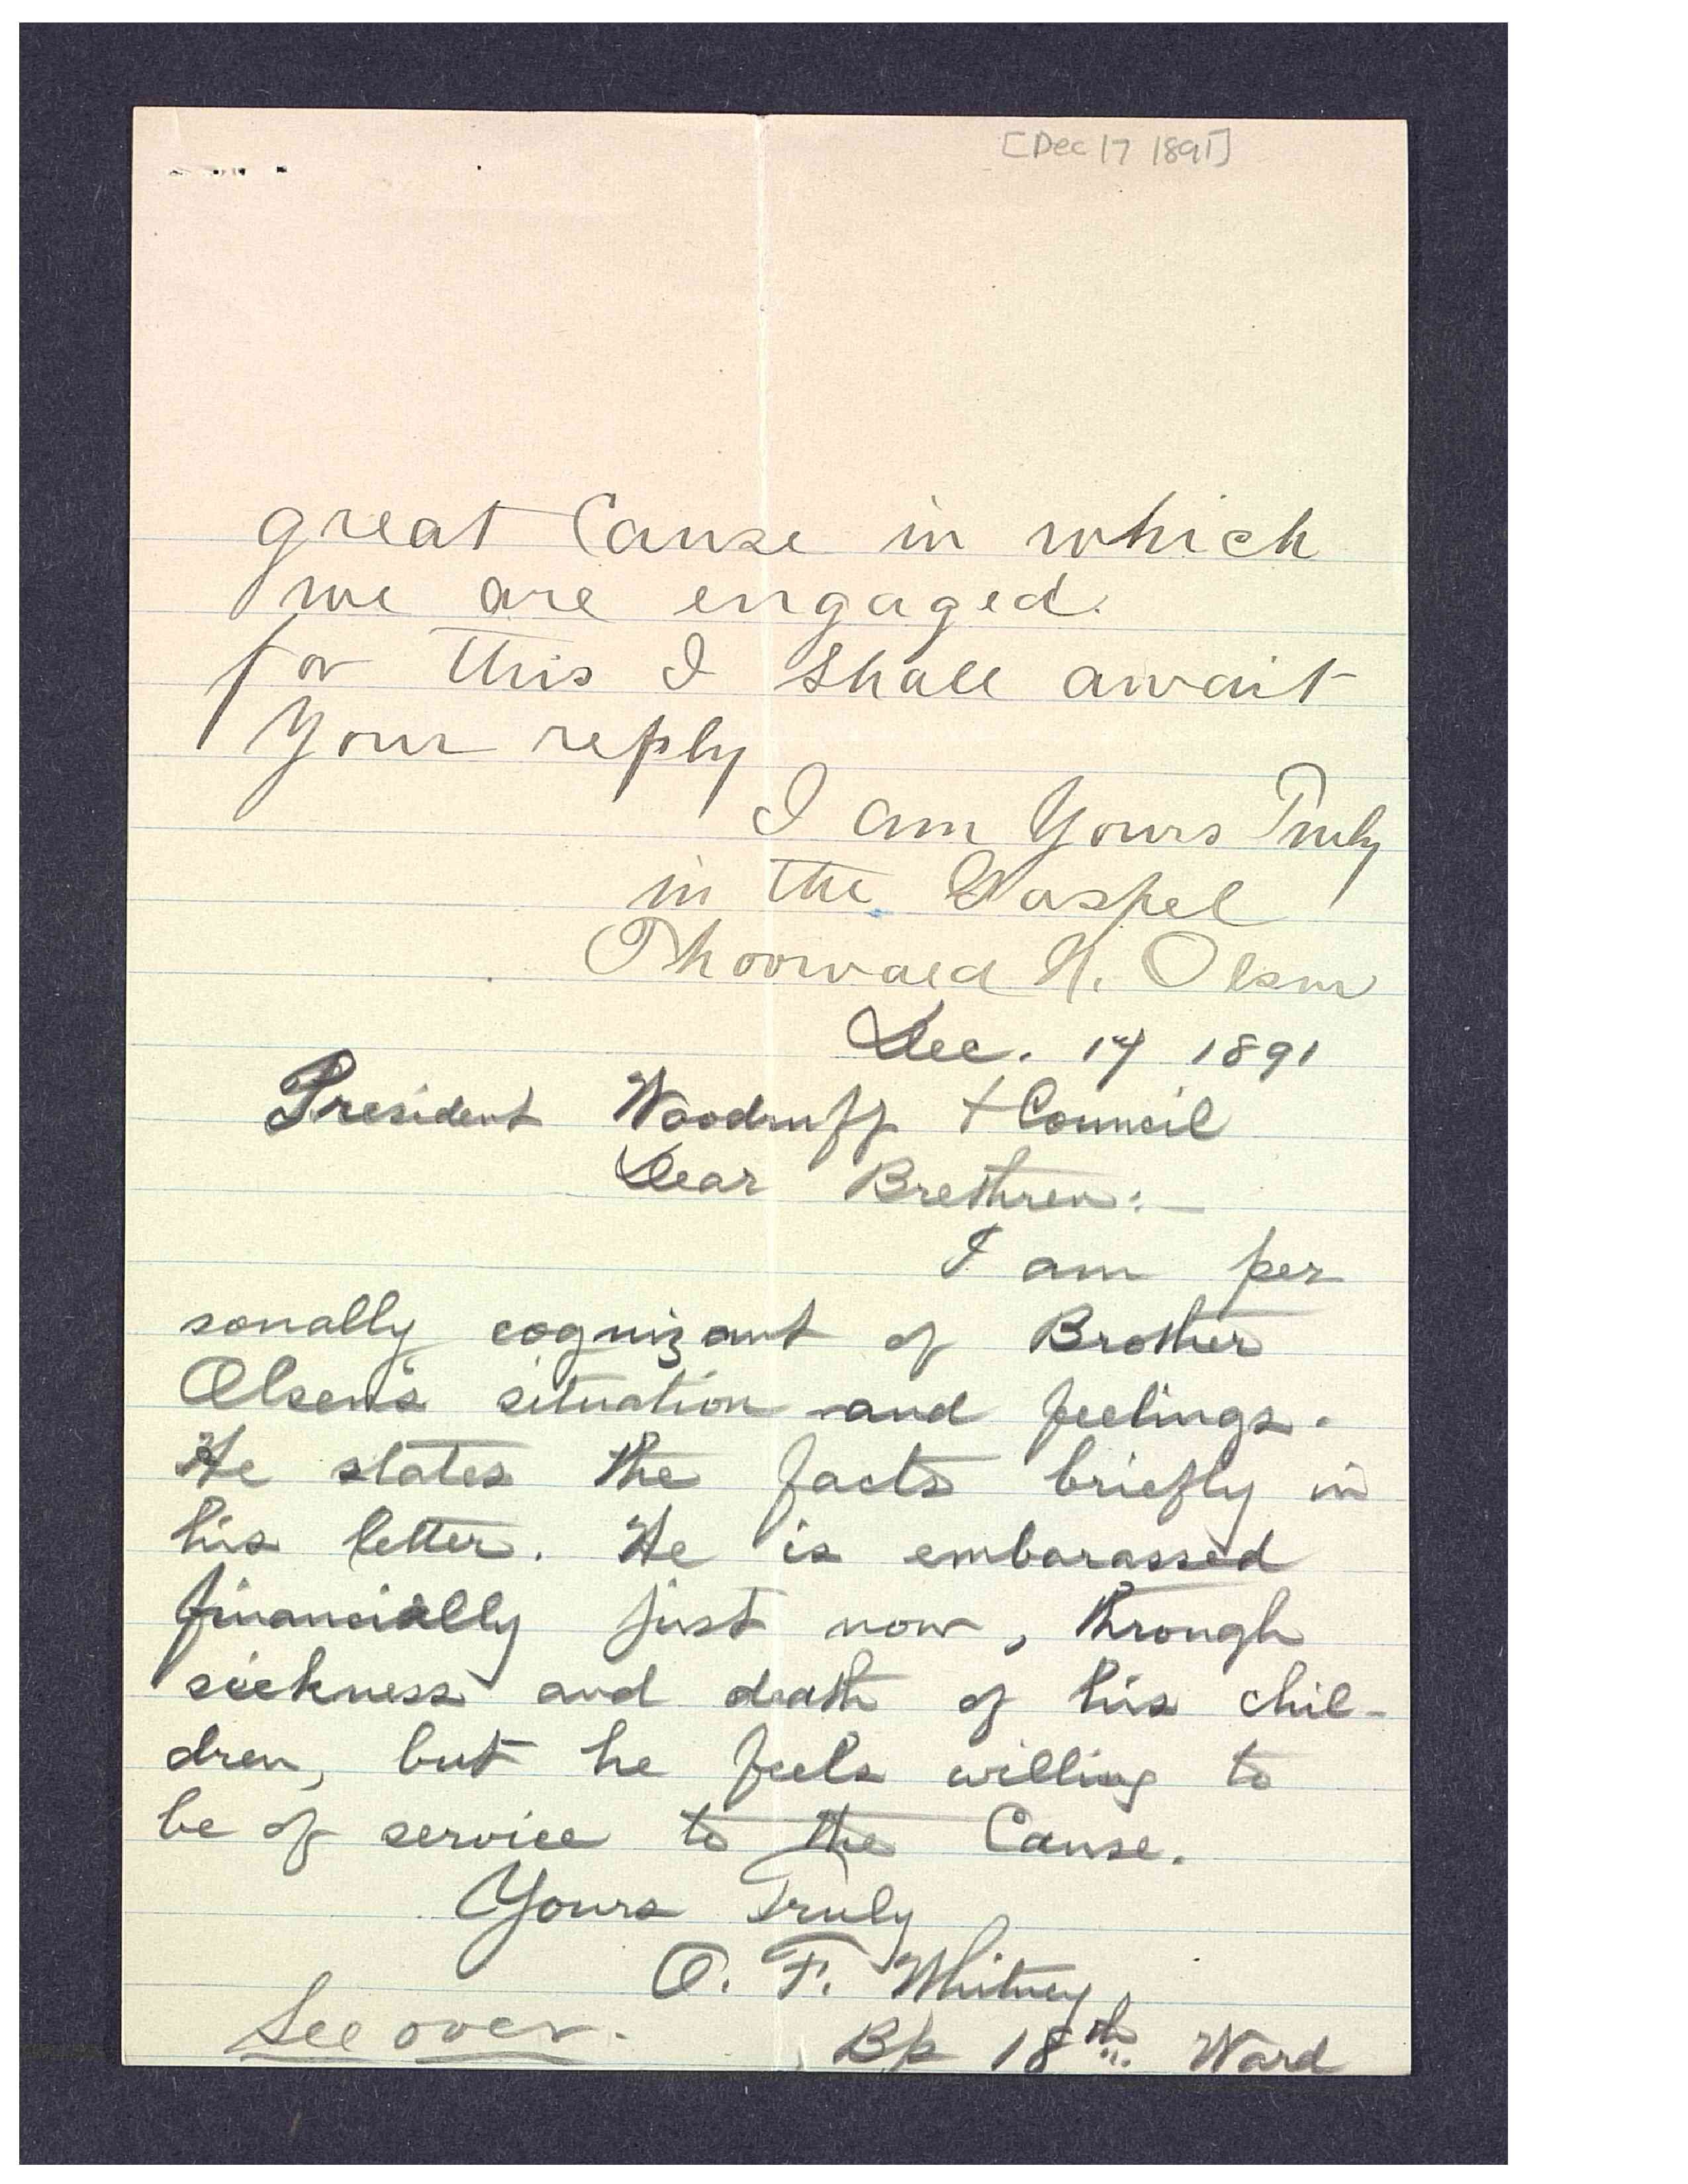 [Dec 17 1891]
great Cause in which
we are engaged.
for this I shall await
Your reply
I am Yours Truly
in the Gospel
Thorwald N. Olsen
Dec. 17 1891
President Woodruff & Council
Dear Brethren:—
I am per
sonally cognizant of Brother
Olsen's situation and feelings.
He states the facts briefly in
his letter. He is embarassed
financially just now, through
sickness and death of his chil-
dren, but he feels willing to
be of service to the Cause.
Yours Truly
O. F. Whitney
See over.
Bp 18th Ward